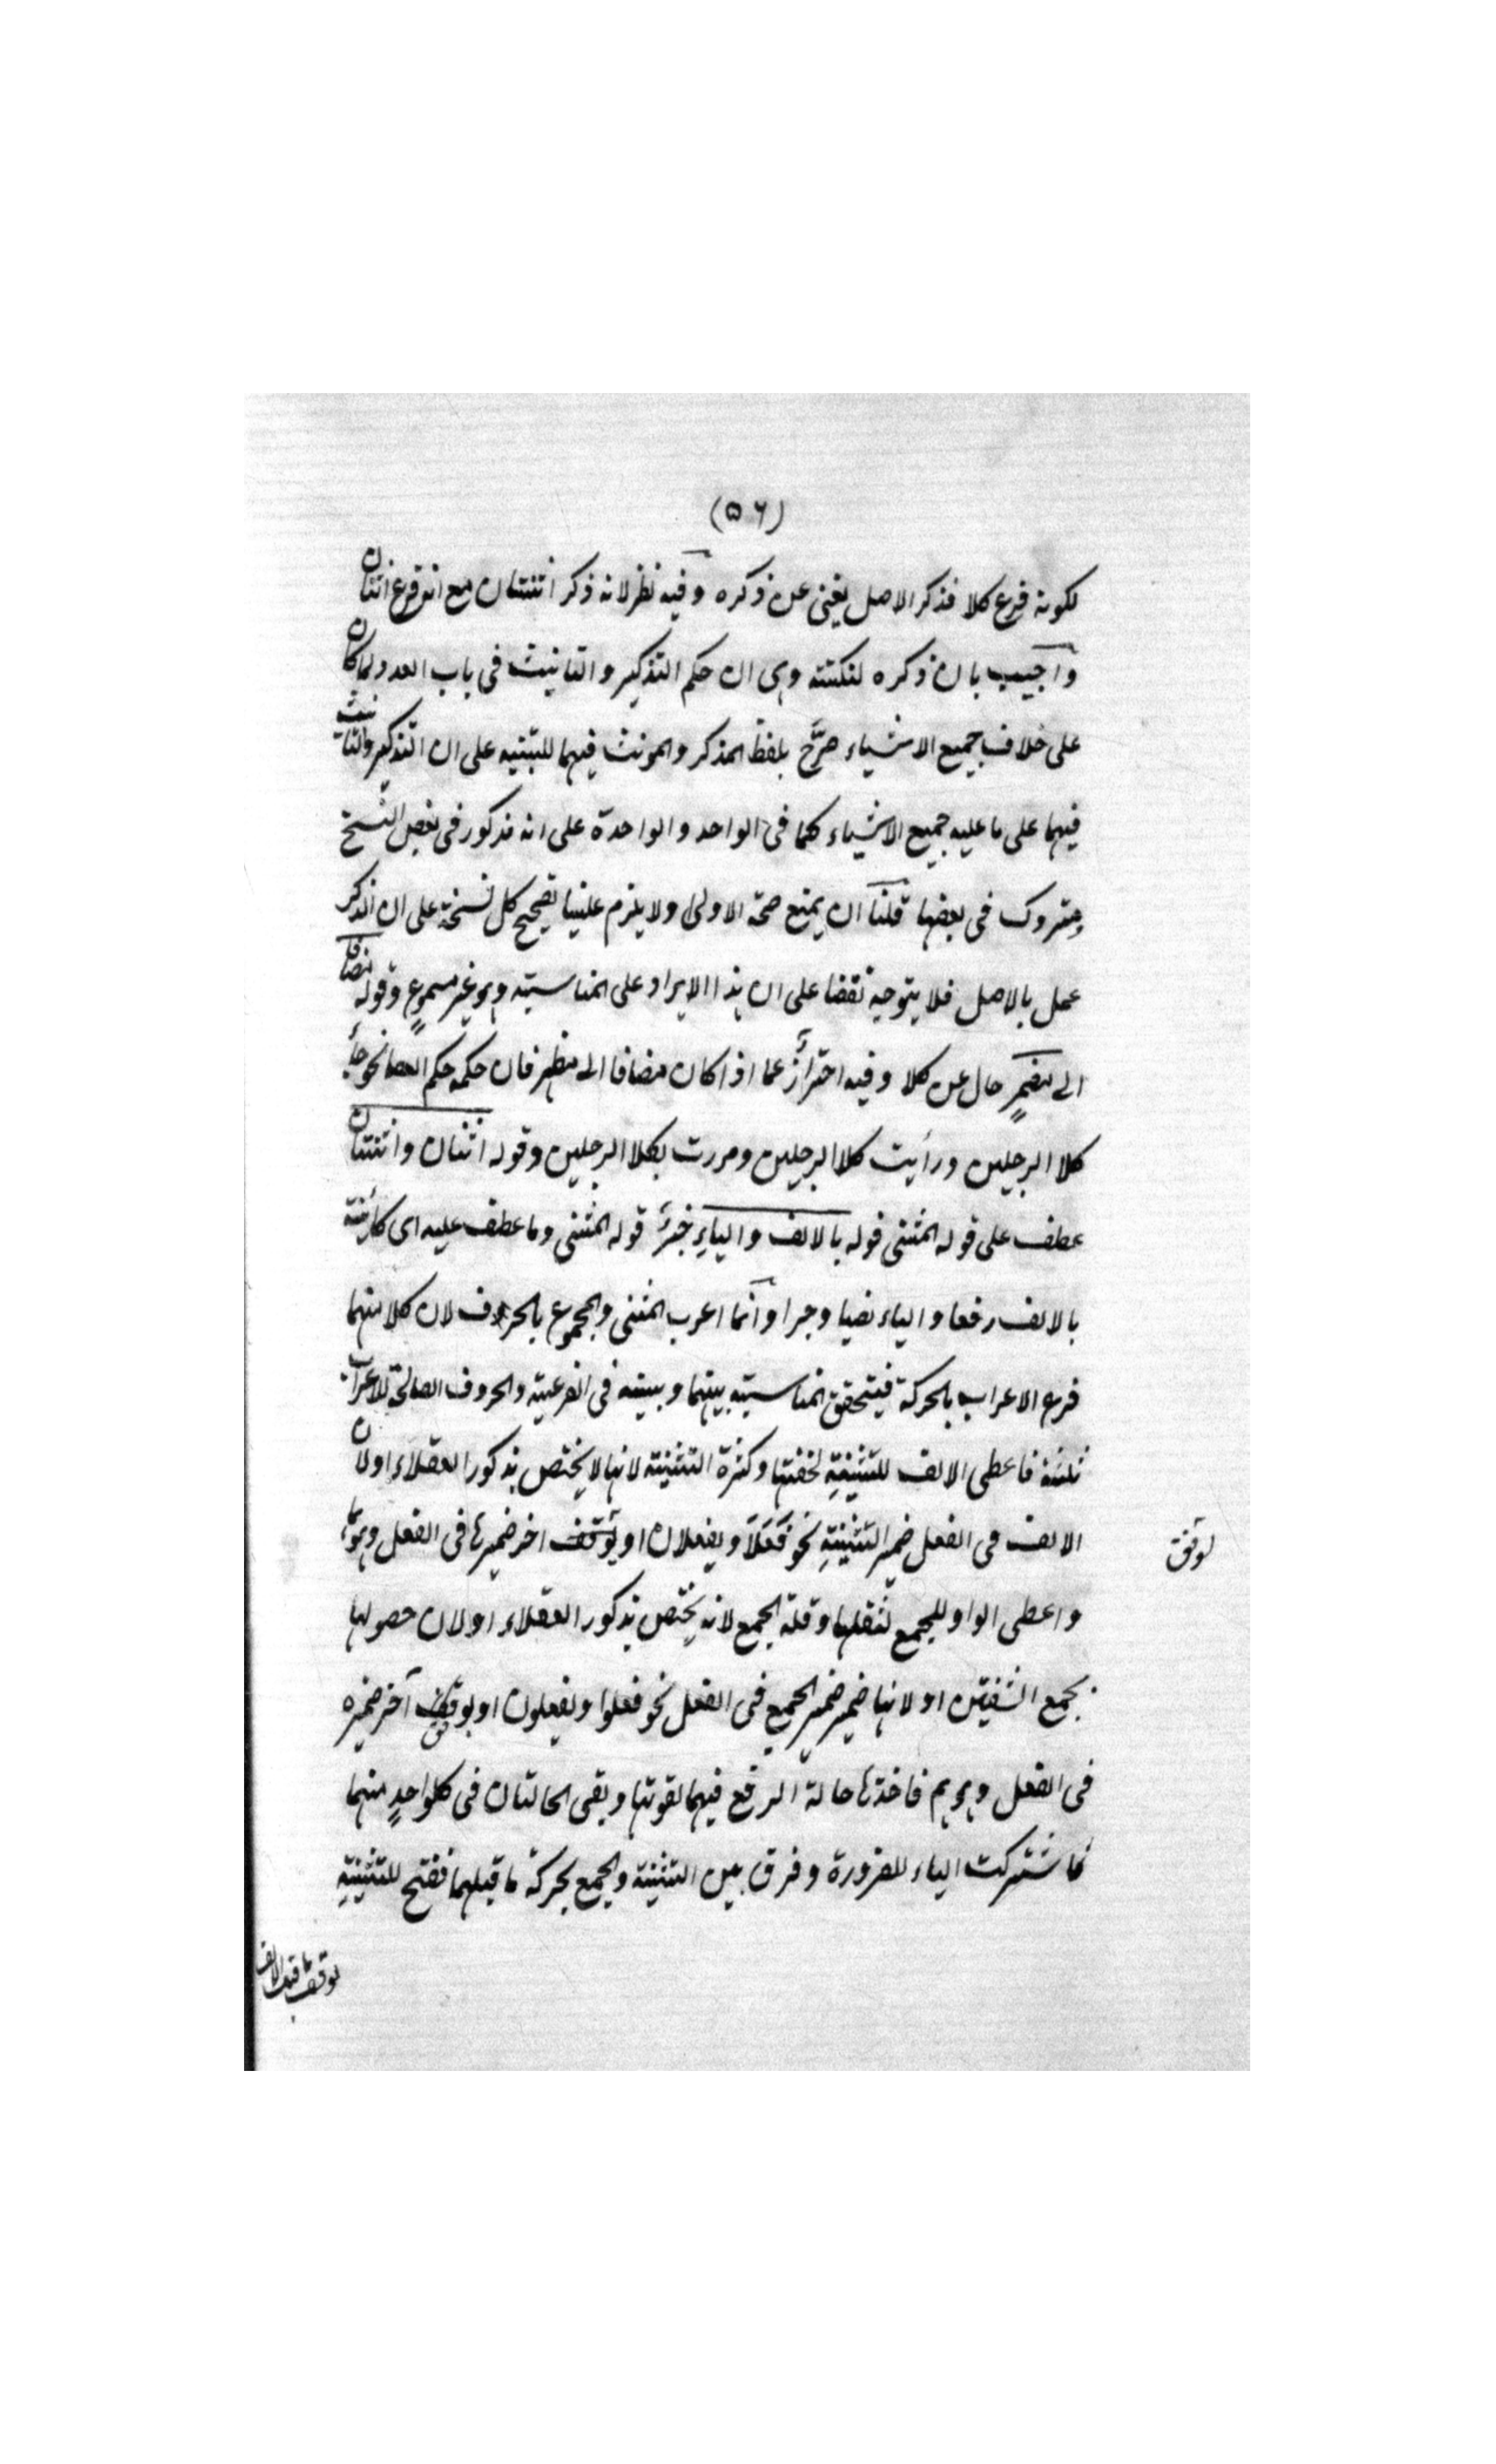 (۵۶)
لكونه فرع كلا فذكر الاصل يغنى عن ذكره وفيه نظر لانه ذكر اثنتان مع انه فرع اثنان
واجيب بان ذكره لنكتته وهى ان حكم التذكير والتانيث فى باب العدد لما كان
على خلاف جميع الاشياء صرَّح بلفظ المذكر والمونث فيهما للتبنيه على ان التذكير والتانيث
فيهما على ما عليه جميع الاشياء كما فى الواحد والواحدة على انه مذكور فى بعض النسخ
ومتروك فى بعضها قلنا ان يمنع صحة الاولى ولا يلزم علينا تصحيح كل نسخة على ان الذكر
عمل بالاصل فلا يتوجه نقضا على ان هذا الايراد على المناسبته وهو غير مسموعٍ وقوله مضافا
الى مضمرٍ حال عن كلا وفيه احترازٌ عما اذا كان مضافا الى مظهر فان حكمه حكم العصا نحو جاء
كلا الرجلين ورأيت كلا الرجلين ومررت بكلا الرجلين وقوله اثنان واثنتان
عطف على قوله المثنى قوله بالالف والياءِ خبرُ قوله المثنى وما عطف عليه اى كائنة
بالالف رفعا والياء نصبا وجرا وانما اعرب المثنى والمجموع بالحروف لان كلا منهما
فرع الاعراب بالحركة فيتحقق المناسبته بينهما وبينه فى الفرعيته والحروف الصالحة للاعراب
ثلثة فاعطى الالف للتثنيةِ لخفتها وكثرة التثنيته لانها لا يختص بذكور العقلاء اولان
الالف فى الفعل ضمير التثنيةِ نحو فَعَلَا ويفعلان او يوقف اخر ضميرها فى الفعل وهو
واعطى الواو للجمع لثقلها وقلة الجمع لانه يختص بذكور العقلاء اولان حصولها
بجمع الشفتين اولانها ضمير ضمير الجميع فى الفعل نحو فعلوا ويفعلون او يوقف آخر ضميره
فى الفعل وهو هم فاخذتها حالة الرفع فيهما لقوتها وبقى الحالتان فى كلواحدٍ منهما
فاشتركت الياء للضرورة وفرق بين التثنيته والجمع بحركة ما قبلهما ففتح للتثنيةِ
لوفق
توقف ما قبل الالف